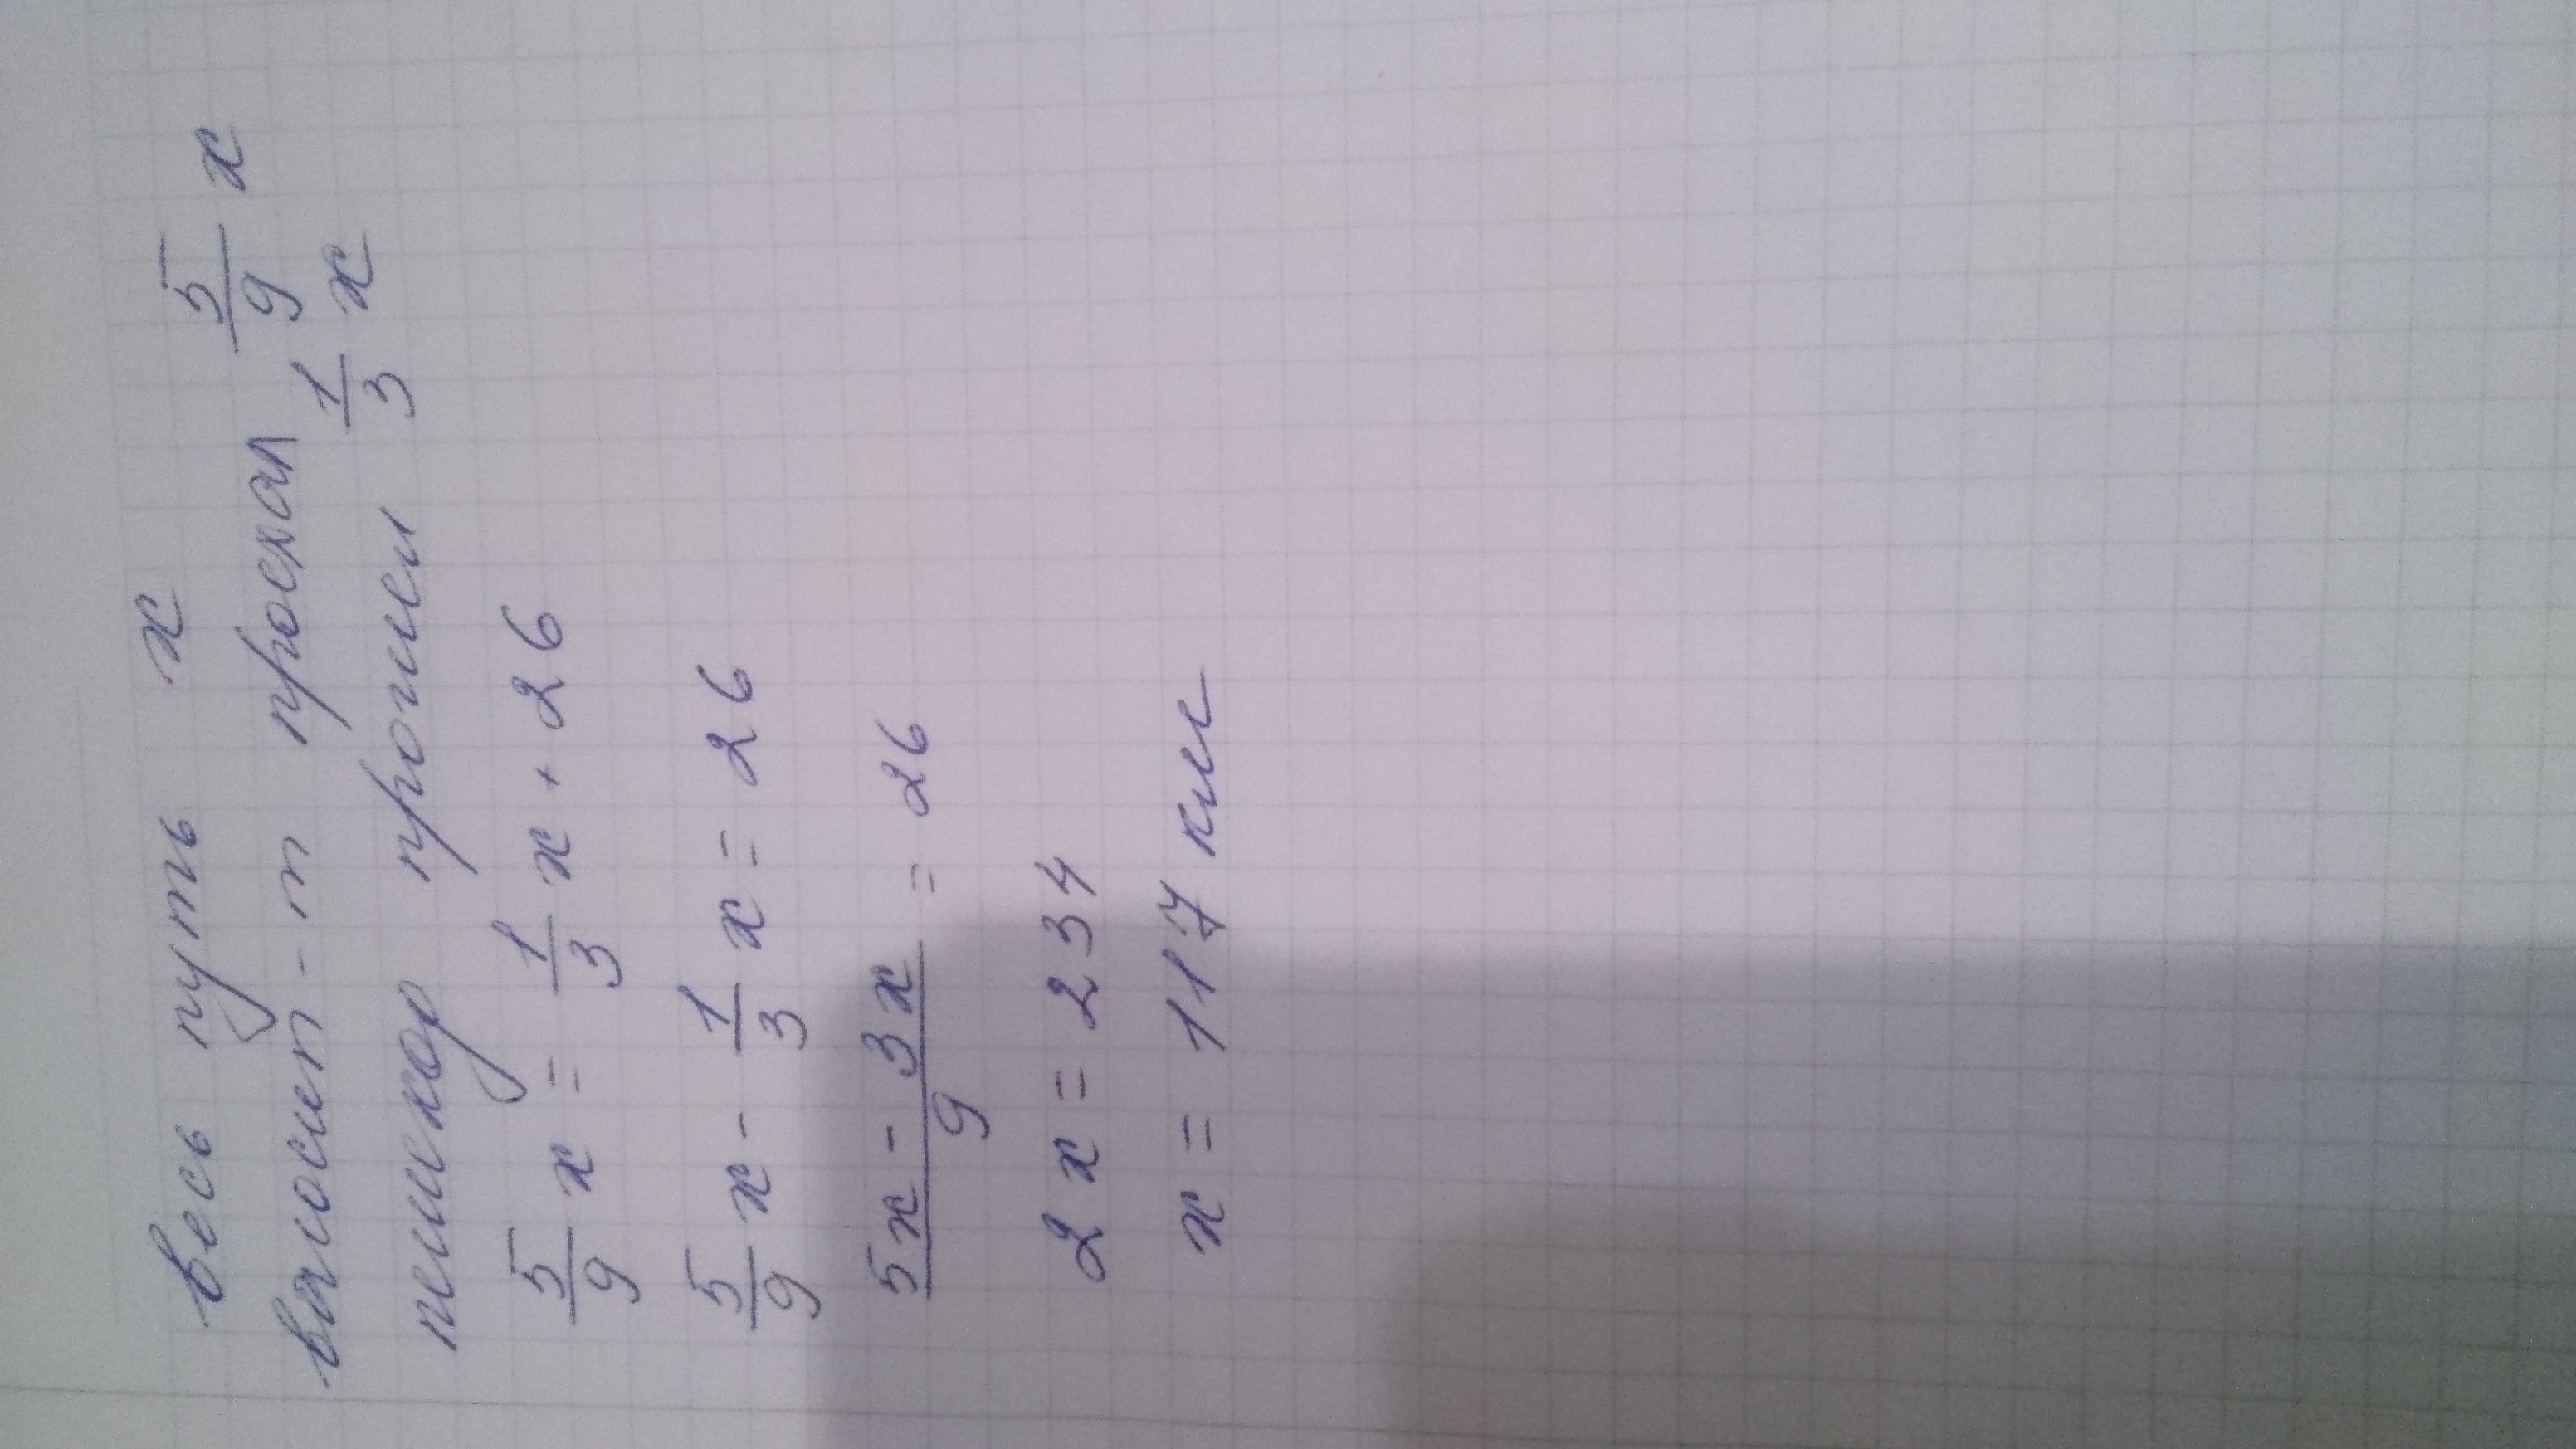 весь путь x
велосип-т проехал 5/9 x
пешеход прошел 1/3 x
5/9 x = 1/3 x + 26
5/9 x - 1/3 x = 26
5x - 3x / 9 = 26
2x = 234
x = 117 км